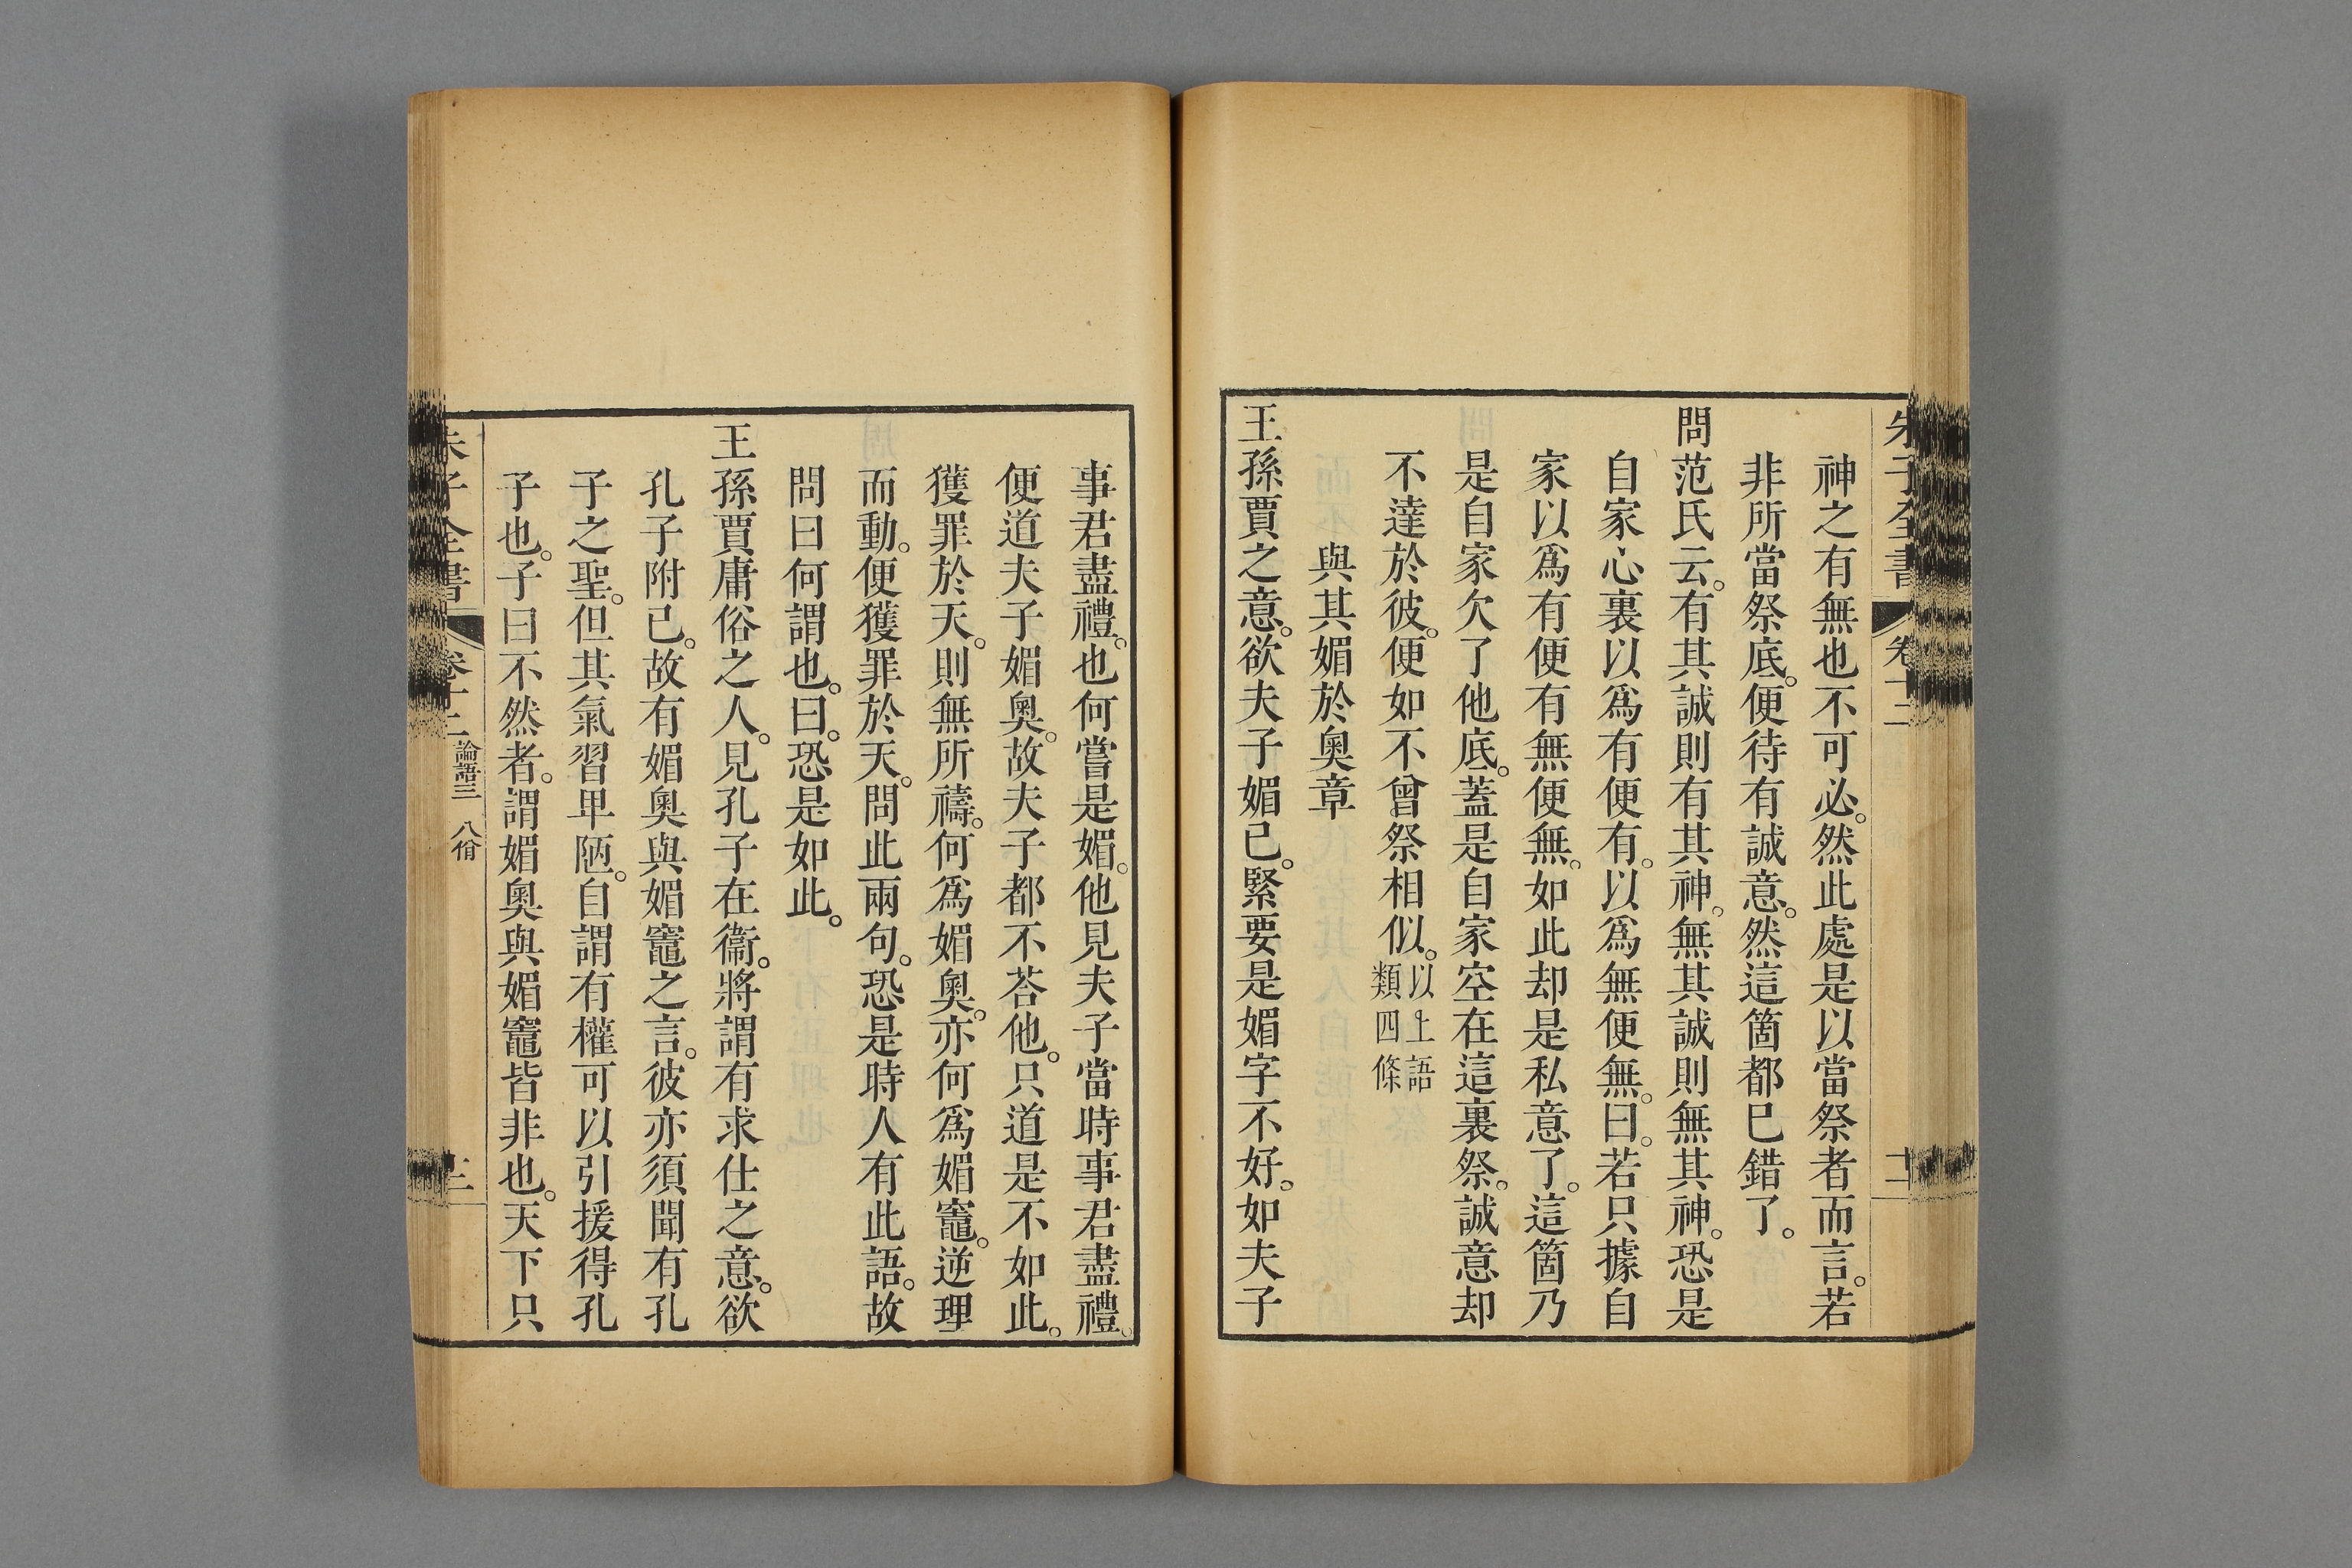 朱子全書 卷十二
神之有無也不可必。然此處是以當祭者而言。若
非所當祭底。便待有誠意。然這箇都巳錯了。
問范氏云。有其誠則有其神。無其誠則無其神。恐是
自家心裏以爲有便有。以爲無便無。曰。若只據自
家以爲有便有無便無。如此却是私意了。這箇乃
是自家欠了他底。蓋是自家空在這裏祭。誠意却
不達於彼。便如不曾祭相似。以上語
類四條
與其媚於奧章
王孫賈之意。欲夫子媚己。緊要是媚字不好。如夫子
事君盡禮。也何嘗是媚。他見夫子當時事君盡禮。
便道夫子媚奧。故夫子都不荅他。只道是不如此。
獲罪於天。則無所禱。何爲媚奧。亦何爲媚竈。逆理
而動。便獲罪於天。問此兩句。恐是時人有此語。故
問曰何謂也。曰。恐是如此。
王孫賈庸俗之人。見孔子在衞。將謂有求仕之意。欲
孔子附己。故有媚奧與媚竈之言。彼亦須聞有孔
子之聖。但其氣習卑陋。自謂有權可以引援得孔
子也。子曰不然者。謂媚奧與媚竈皆非也。天下只
朱子全書 卷十二 論語三 八佾